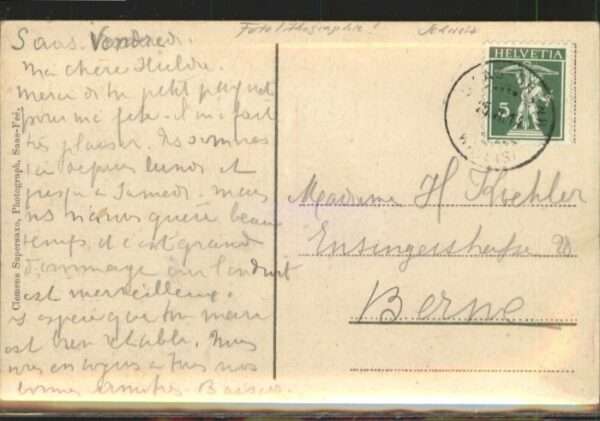 Foto / Photographie!
Schweiz
Saas. Vendredi.
Ma chère Hilde.
Merci du petit paquet
pour ma fête - il m'a fait
très plaisir. Ns sommes
ici depuis lundi et
jusqu'à Samedi. mais
ns n'avons guère beau
temps et c'est grand
dommage car l'endroit
est merveilleux.
Js espère que ton mari
est bien rétabli. Nous
envoyons à nos
bonnes amitiés. Baisers.
Clemens Supersaxo, Photograph, Saas-Fee.
HELVETIA
5
Madame H Koehler
Ensingerstrasse
Berne